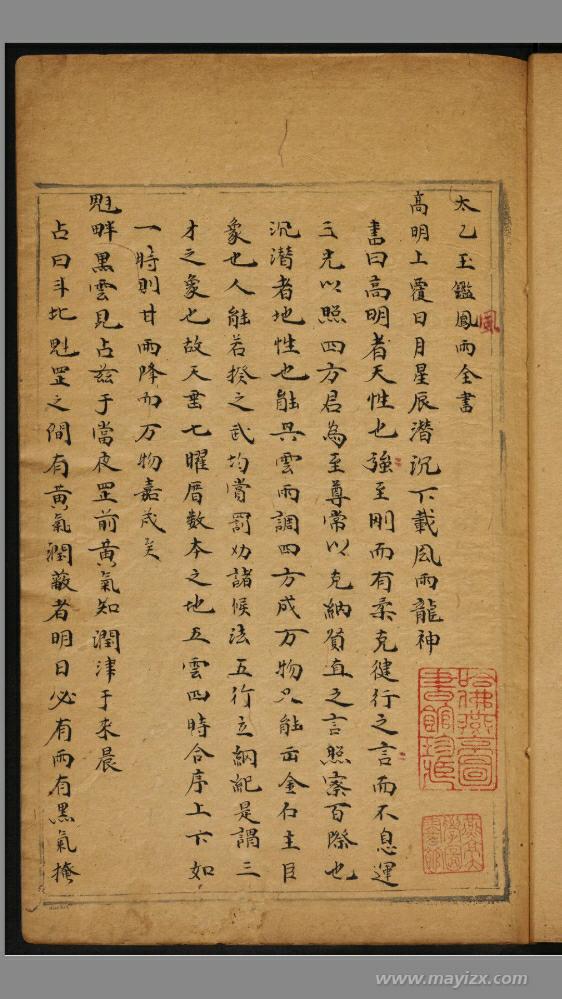 太乙玉鑑鳳雨全書
風
高明上覆日月星辰潜沉下載風雨龍神
書曰高明者天性也強至剛而有柔克健行之言而不息運
三光以照四方君為至尊常以克納質直之言照察百際也
沉潜者地性也能興雲雨調四方成万物又能出金石主目
象也人能若揆之武均賞罰劝諸候法五行立綱紀是謂三
才之象也故天垂七曜曆数本之地五雲四時合序上下如
一時則甘雨降而万物嘉茂矣
魁畔黒雲見占兹于當夜罡前黄氣知潤津于来晨
占曰斗北魁罡之間有黄氣潤蔽者明日必有雨有黒氣掩
哈佛燕京圖書館珍藏
www.mayizx.com